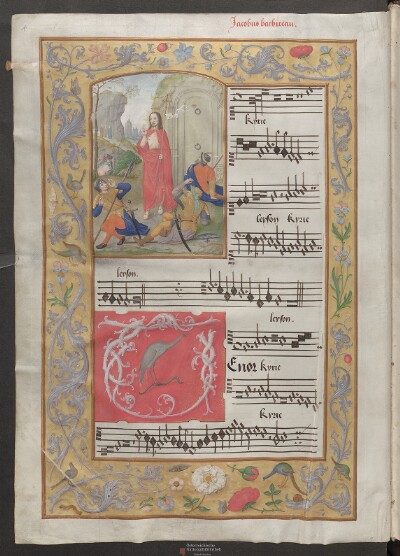 Jacobus barbirianus.
Kyrie
leyson Kyrie
leyson.
leyson.
Enor Kyrie
Kyrie